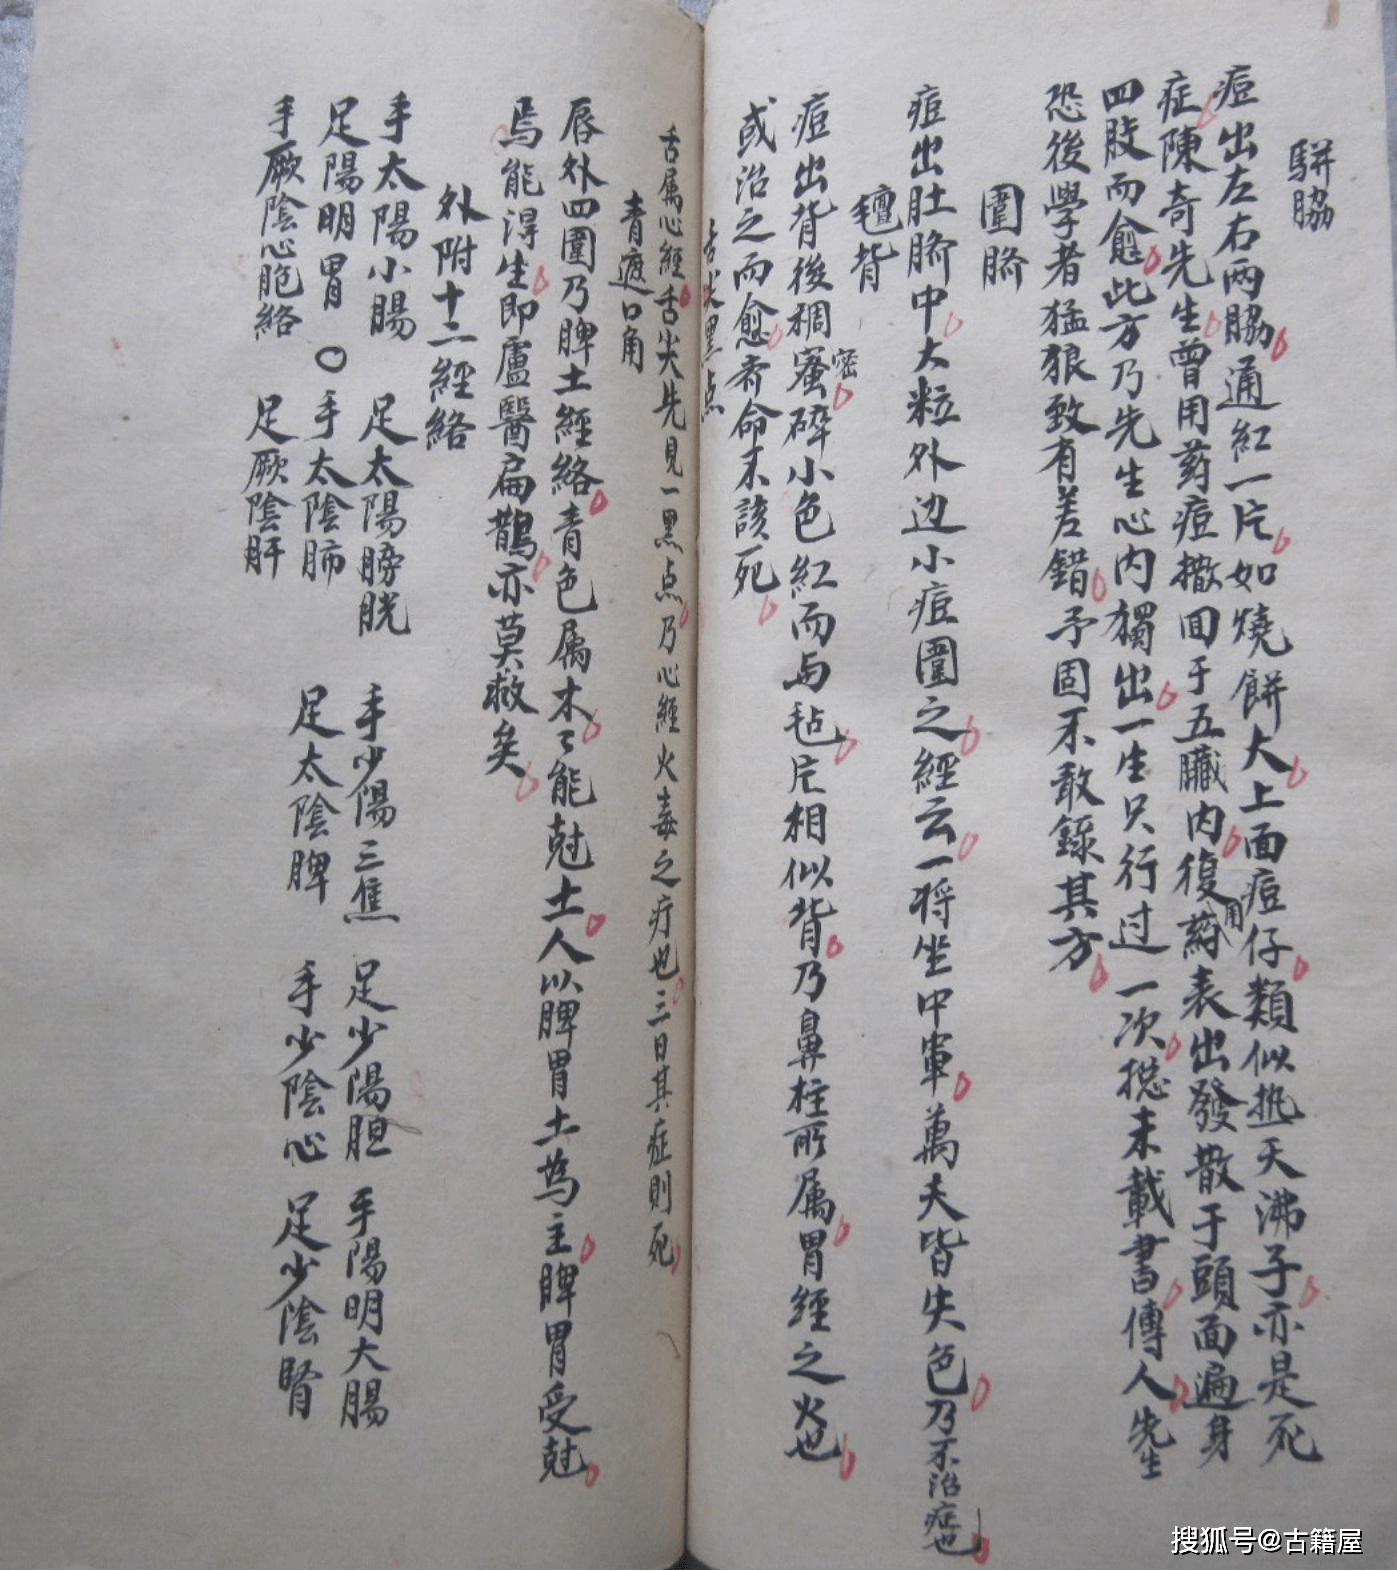 駢脇
痘出左右兩脇通紅一片如燒餅大上面痘仔類似热天沸子亦是死
症陳奇先生曾用葯痘撒回于五臟内復用葯表出發散于頭面遍身
四肢而愈此方乃先生心内獨出一生只行过一次捴未載書傳人先生
恐後學者猛狼致有差錯予固不敢錄其方
圍臍
痘出肚臍中大粒外边小痘圍之經云一将坐中軍萬夫皆失色乃不治症也
氊背
痘出背後稠蜜密碎小色紅而与毡片相似背乃鼻柱所属胃經之火也
或治之而愈者命不該死
舌尖黑点
舌属心經舌尖先見一黑点乃心經火毒之疔也三日其症則死
青遮口角
唇外四圍乃脾土經絡青色属木々能尅土人以脾胃土為主脾胃受尅
焉能淂生即盧醫扁鵲亦莫救矣
外附十二經絡
手太陽小腸 足太陽膀胱 手少陽三焦 足少陽胆 手陽明大腸
足陽明胃〇手太陰肺 足太陰脾 手少陰心 足少陰腎
手厥陰心胞絡 足厥陰肝
搜狐号@古籍屋